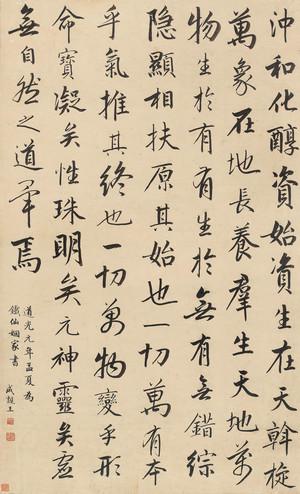 沖和化醇資生資始在天斡旋
萬象在地長養羣生天地萬
物生於有有生於無有無錯綜
隱顯相扶原其始也一切萬有本
乎氣推其終也一切萬物變乎形
命寶凝矣性珠明矣元神靈矣虛
無自然之道畢焉
道光元年孟夏為
鐵仙姻家書
成親王